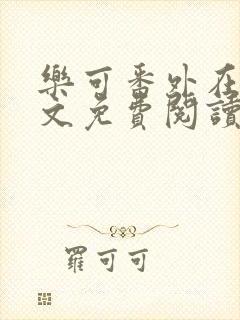 樂可番外在
文免費閱讀
羅可可